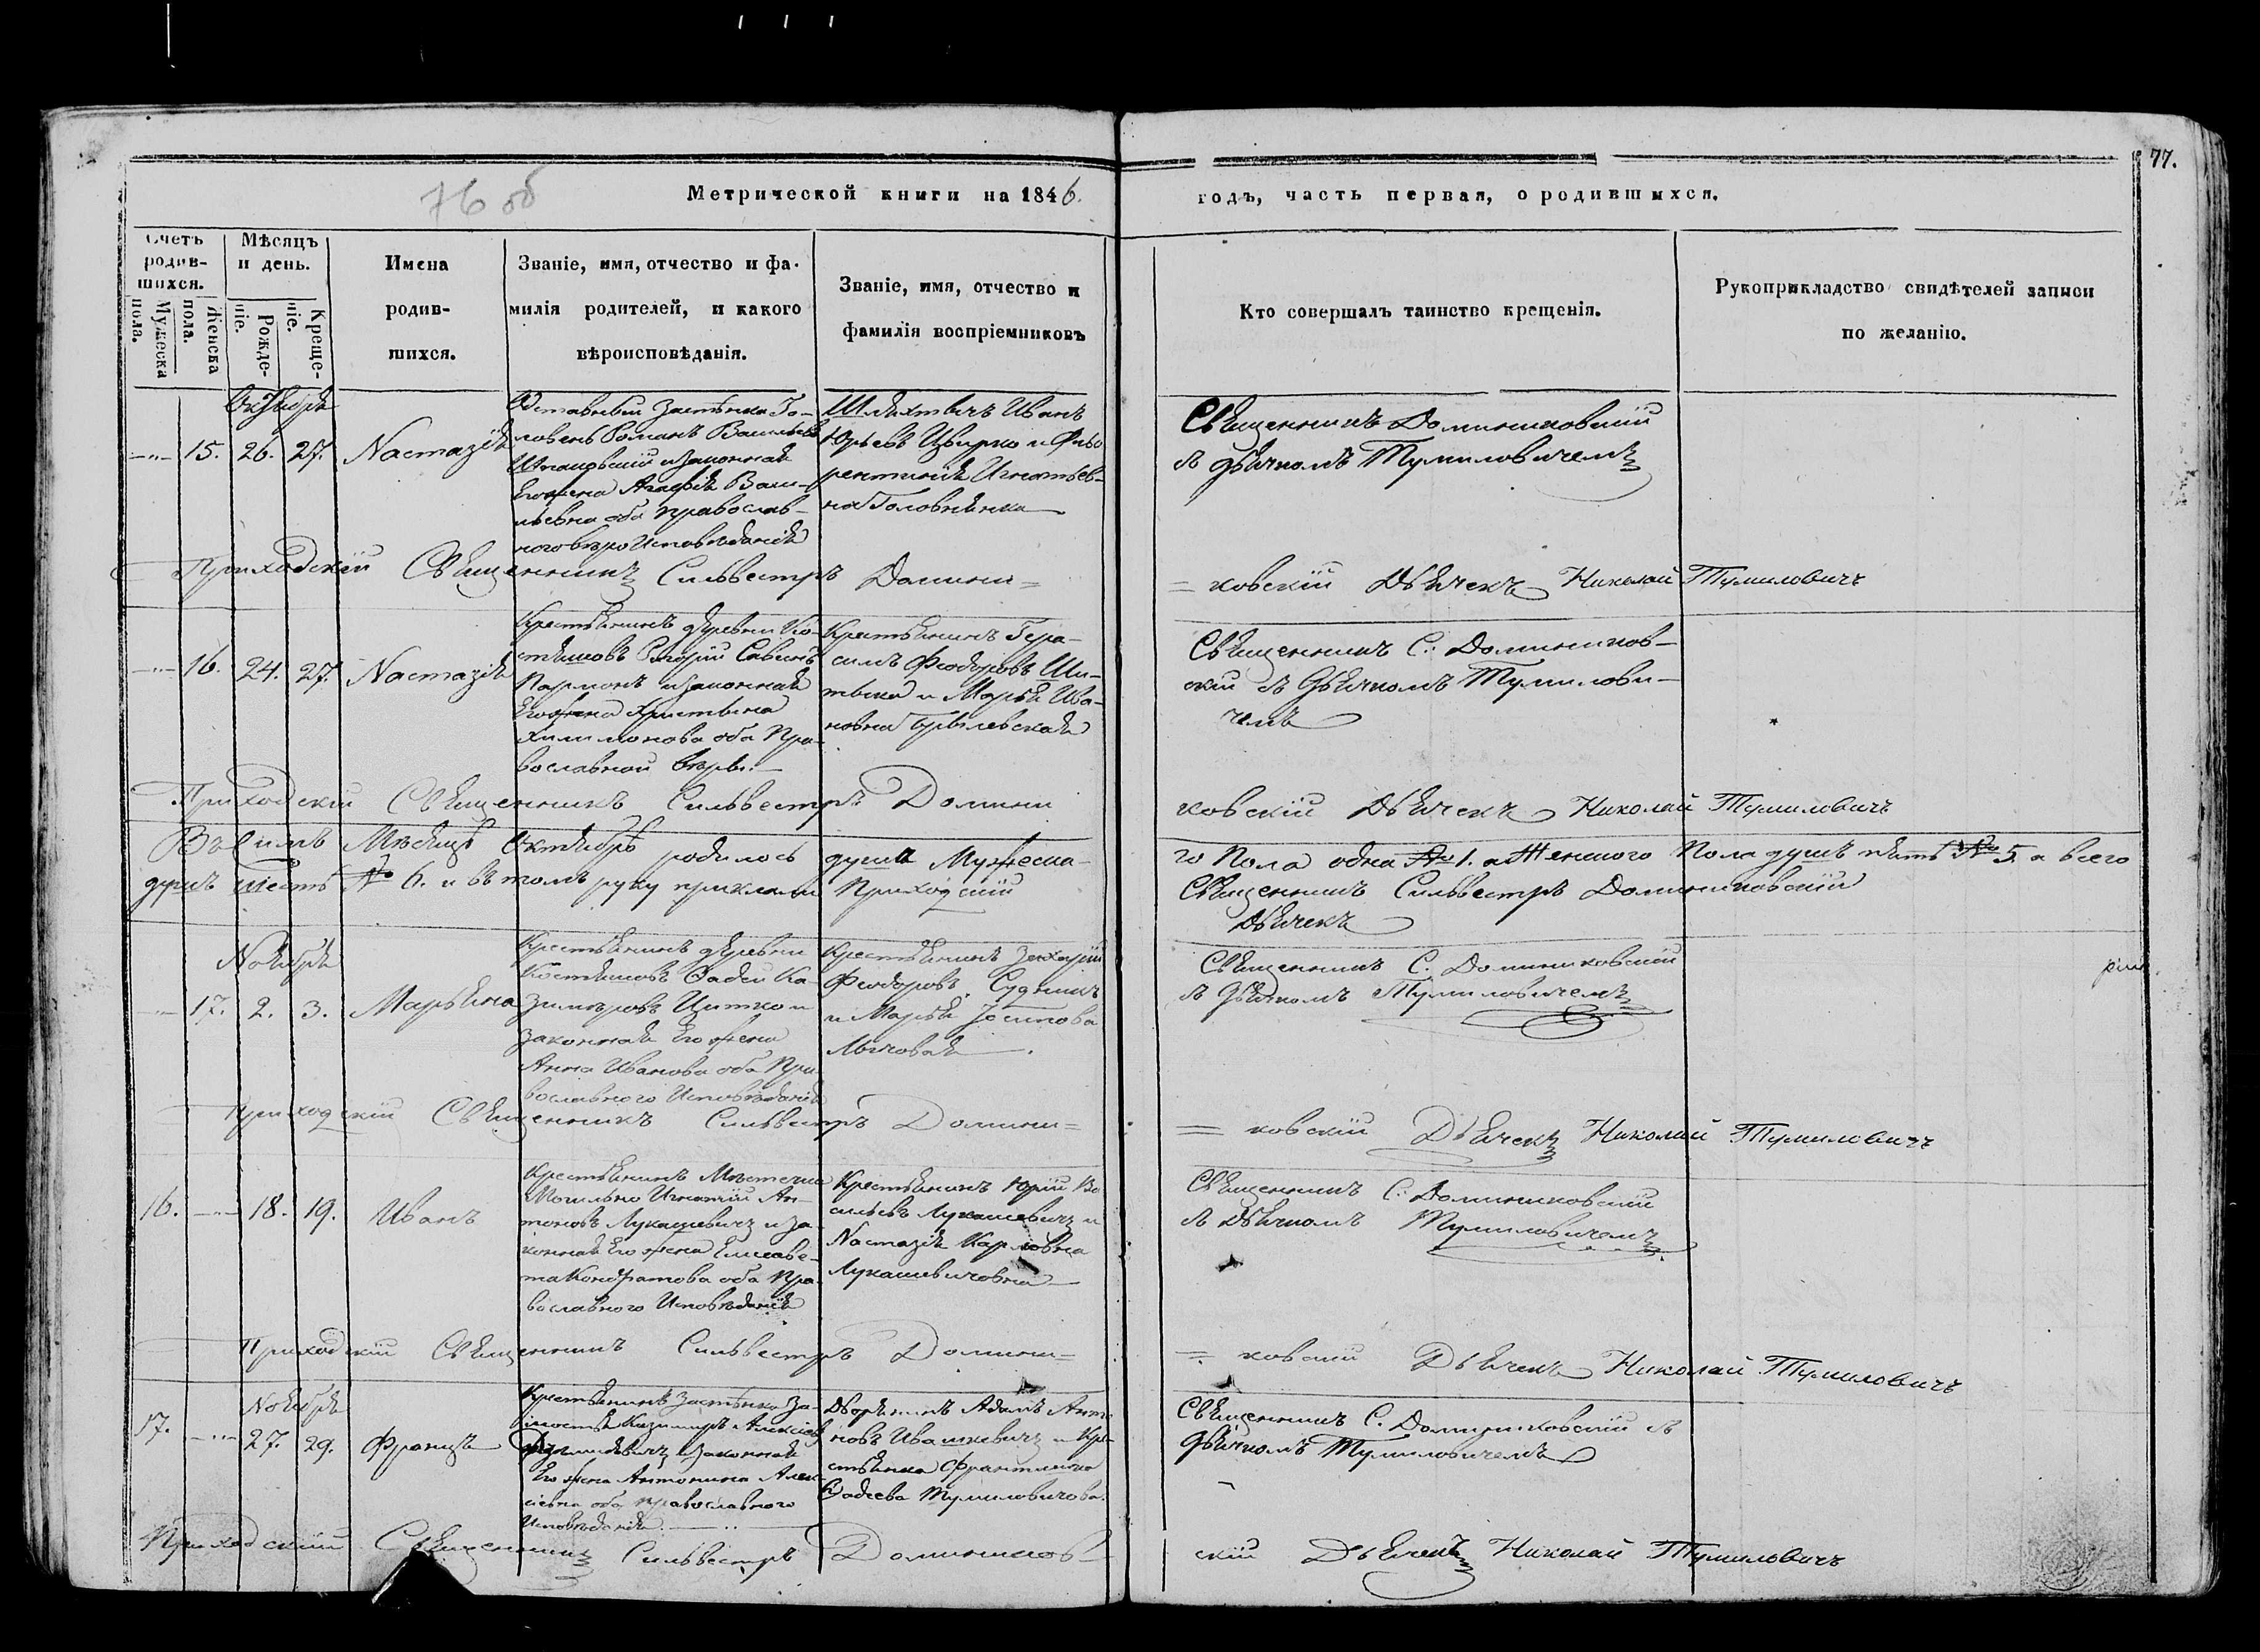 77.
76 об
Метрической книги на 1846.
годъ, часть первая, о родившихся.
Счетъ родив-шихся.
Мужеска пола.
Женска пола.
Мѣсяцъ и день.
Рожде-ніе.
Креще-ніе.
Имена
родив-
шихся.
Званіе, имя, отчество и фа-
милія родителей, и какого
вѣроисповѣданія.
Званіе, имя, отчество и
фамилія воспріемниковъ
Кто совершалъ таинство крещенія.
Рукоприкладство свидѣтелей записи
по желанію.
Октября
15. 26. 27. Настазія
Романъ Васильевъ
и законная
Его жена Агафія Васи-
льевна оба православ-
ного вѣроисповѣданія
Шляхтичъ Иванъ
Юрьевъ Цвирко и Фло
рентина Игнатьев-
на
Священникъ Доминиковскій
съ дьячкомъ Тумиловичемъ
Приходскій Священникъ Сильвестръ Домини=
=ковскій Дьячекъ Николай Тумиловичъ
16. 24. 27. Настазія
Крестьянинъ деревни Ко-
Савинъ
и законная
Его жена Христина
Филимонова оба Пра-
вославной вѣры.
Крестьянинъ Гера-
симъ Феодоровъ Ши-
и Марья Ива-
новна
Священникъ С. Домиников-
скій съ дьячкомъ Тумилови-
чемъ
Приходскій Священникъ Сильвестръ Домини
ковскій Дьячекъ Николай Тумиловичъ
Въ симъ Мѣсяцѣ Октябрѣ родилось душа Мужеска-
го Пола одна № 1. а Женского Пола душъ пять № 5. а всего
душъ шесть № 6. и въ томъ руку приклали Приходскій
Священникъ Сильвестръ Доминиковскій
Дьячекъ
Ноября
17. 2. 3. Марьяна
Крестьянинъ деревни
Фадей Ка-
зиміровъ Шитко и
законная Его жена
Анна Иванова оба Пра
вославного Исповѣданія
Крестьянинъ Захарій
Феодоровъ Судникъ
и Марья Іосипова
Священникъ С. Доминиковскій
съ дьячкомъ Тумиловичемъ
Приходскій Священникъ Сильвестръ Домини=
=ковскій Дьячекъ Николай Тумиловичъ
16. 18. 19. Иванъ
Крестьянинъ Мѣстечка
Могильно Игнатій Ан-
тоновъ Лукашевичъ и за-
конная Его жена Елисаве-
та Кондратова оба Пра-
вославного Исповѣданія
Крестьянинъ Юрій Ва
сильевъ Лукашевичъ и
Настазія Карловна
Лукашевичовна
Священникъ С. Доминиковскій
съ дьячкомъ Тумиловичемъ
Приходскій Священникъ Сильвестръ Домини=
=ковскій Дьячекъ Николай Тумиловичъ
Ноября
17. 27. 29. Францъ
Крестьянинъ Застѣнка За-
Казимиръ Алексѣев
и законная
Его жена Антонина Алек-
сіевна оба православного
Исповѣданія.
Дворянинъ Адамъ Анто
новъ Ивашкевичъ и Кре-
стьянка
Фадеева Тумиловичова.
Священникъ С. Доминиковскій съ
дьячкомъ Тумиловичемъ
Приходскій Священникъ Сильвестръ Домиников-
скій Дьячекъ Николай Тумиловичъ